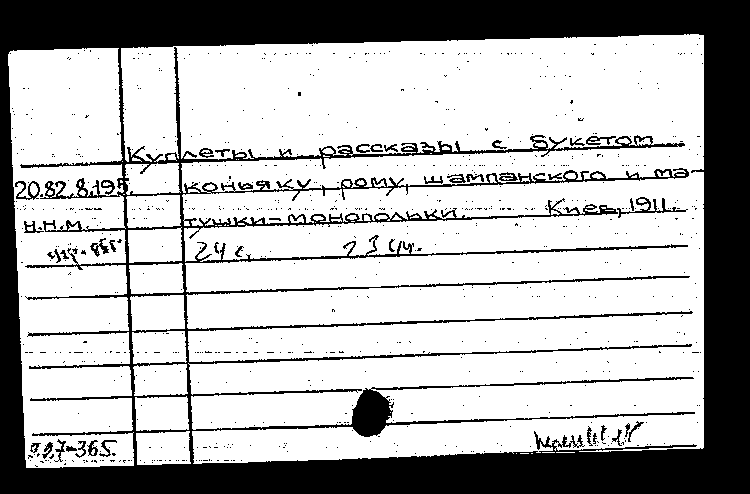 Куплеты и рассказы с букетом
20.82.8.195. коньяку, рому, шампанского и ма-
н.н.м. тушки=монопольки. Киев, 1911.
24 с. 23 см.
9.9.7-365.